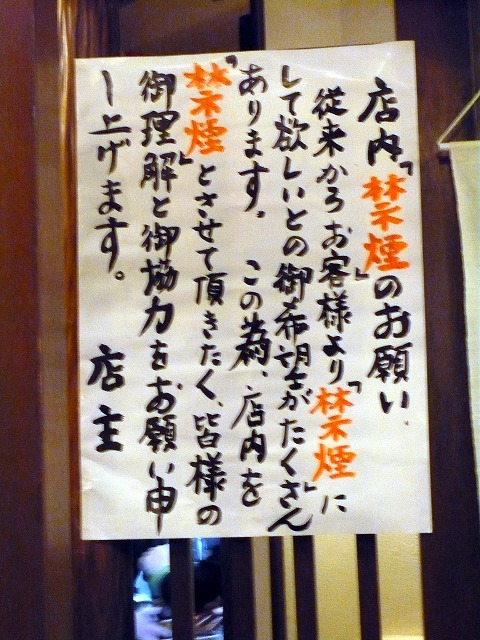 店内「禁煙」のお願い
従来からお客様より「禁煙」に
して欲しいとの御希望がたくさん
あります。この為、店内を
「禁煙」とさせて頂きたく、皆様の
御理解と御協力をお願い申
し上げます。 店主